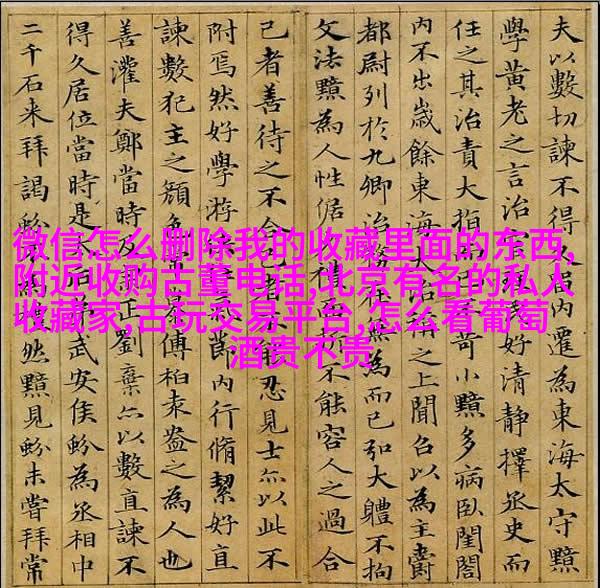 微信怎么删除我的收藏里面的东西,
附近收购古董电话,北京有名的私人
收藏家,古玩交易平台,怎么看葡萄
酒贵不贵
夫以數切諫不得久內遷為東海太守黯
學黃老之言治官民好清靜擇丞史而
任之其治責大指而不苛小黯多病臥閨閤
內不出歲餘東海大治之上聞召以為主爵
都尉列於九卿治務在無為而已弘大體不拘
文法黯為人性倨禮面不能容人之過合
己者善待之不合己者不能忍見士亦以此不
附焉然好學游節內行脩絜好直
諫數犯主之顏色慕傅柏袁盎之為人也
善灌夫鄭當時及正劉棄亦以數直諫不
得久居位當時是太后武安侯蚡為丞相中
二千石來拜謁蚡然黯見蚡未嘗拜常